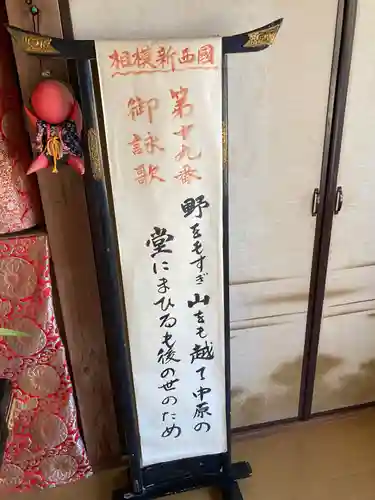 相模新西国
第十九番
御詠歌
野をもすぎ山をも越て中原の
堂にまひるも後の世のため